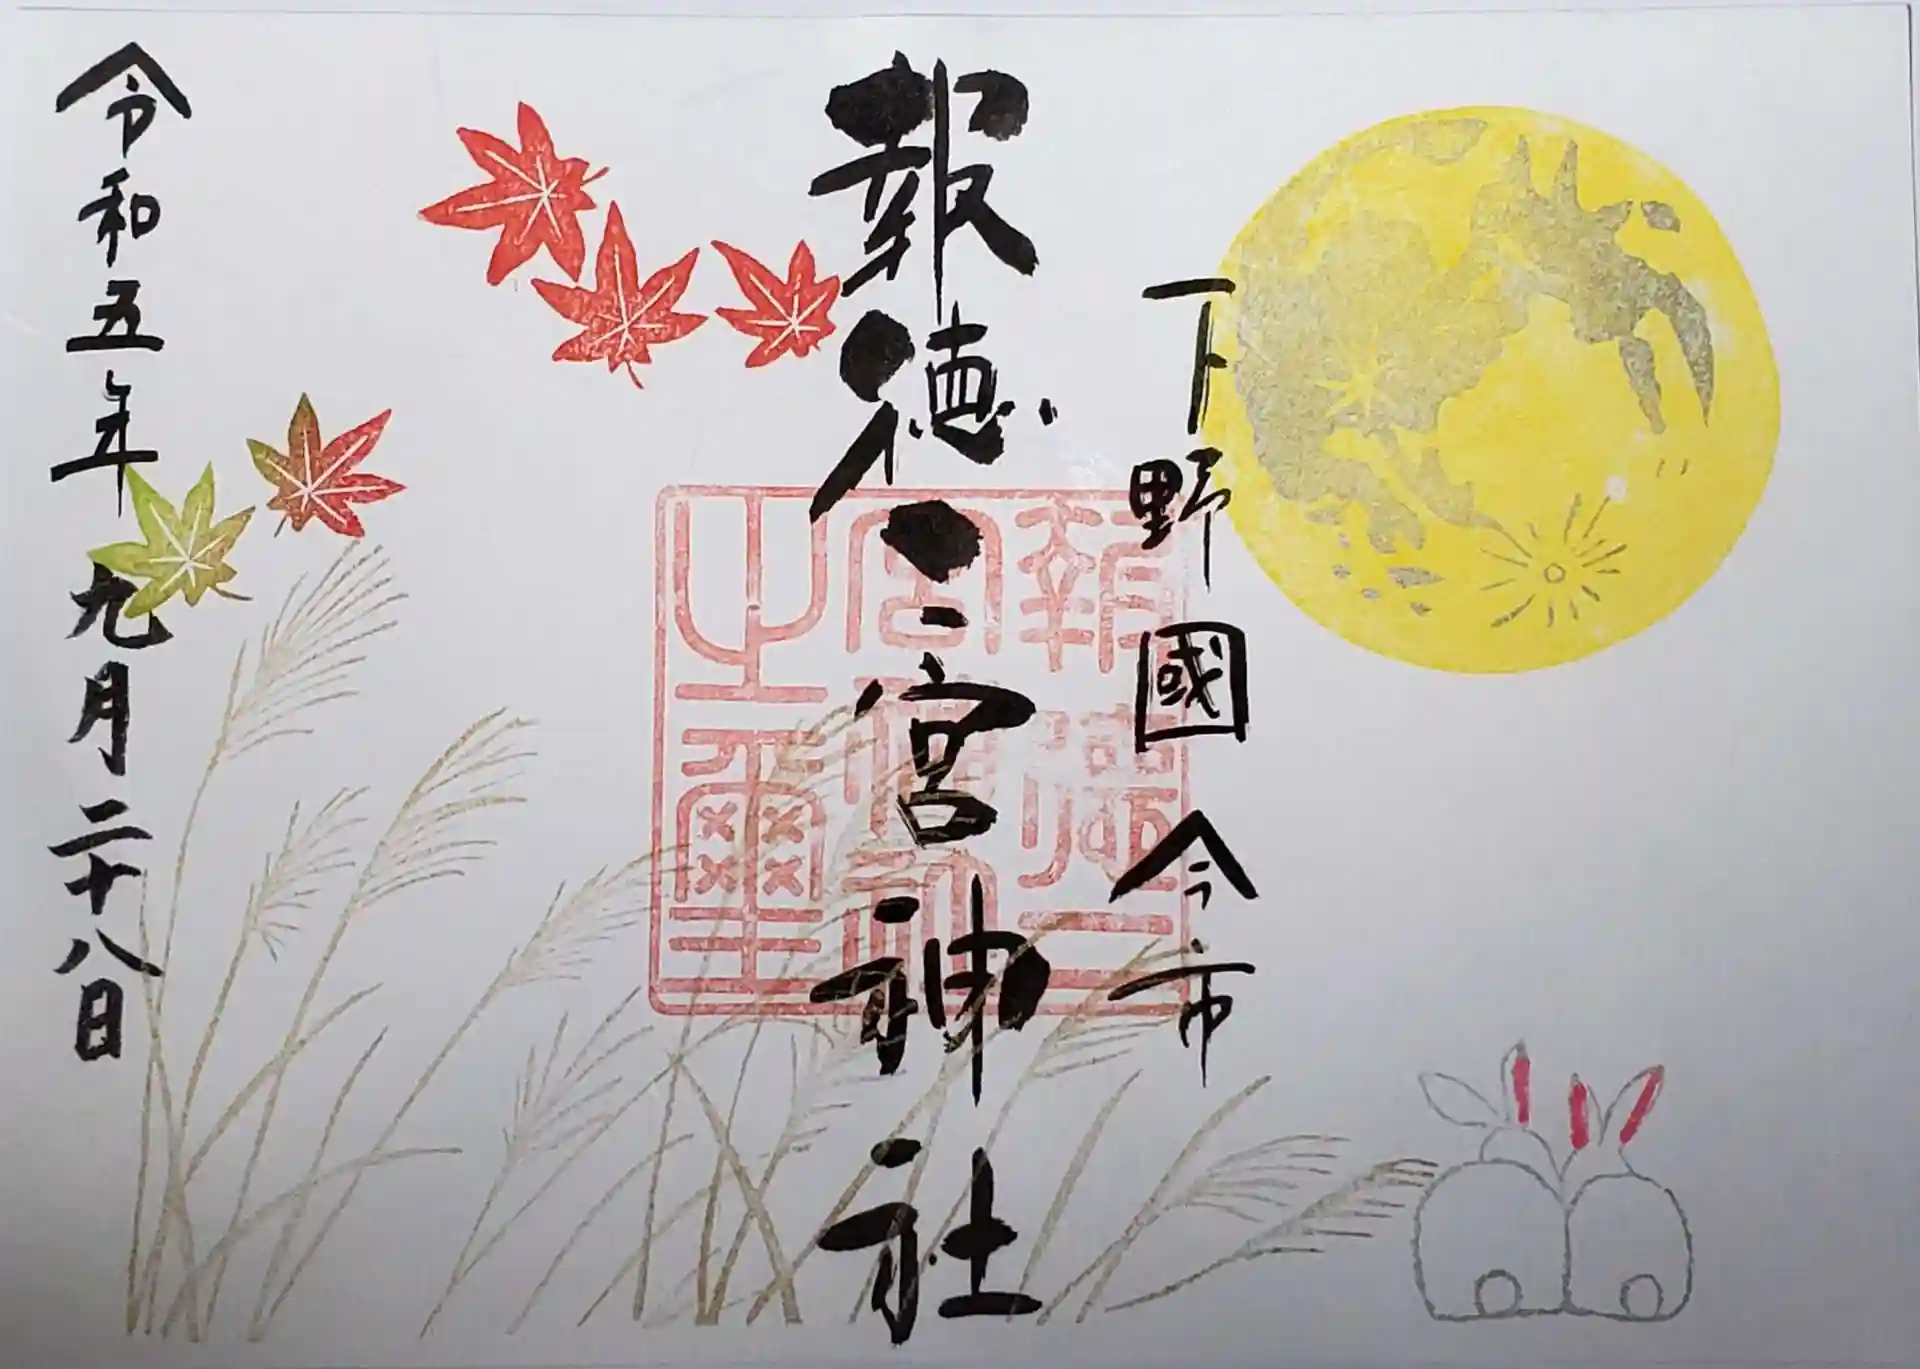 下野國 今市
報徳二宮神社
報徳二宮神社之爾璽
令和五年九月二十八日